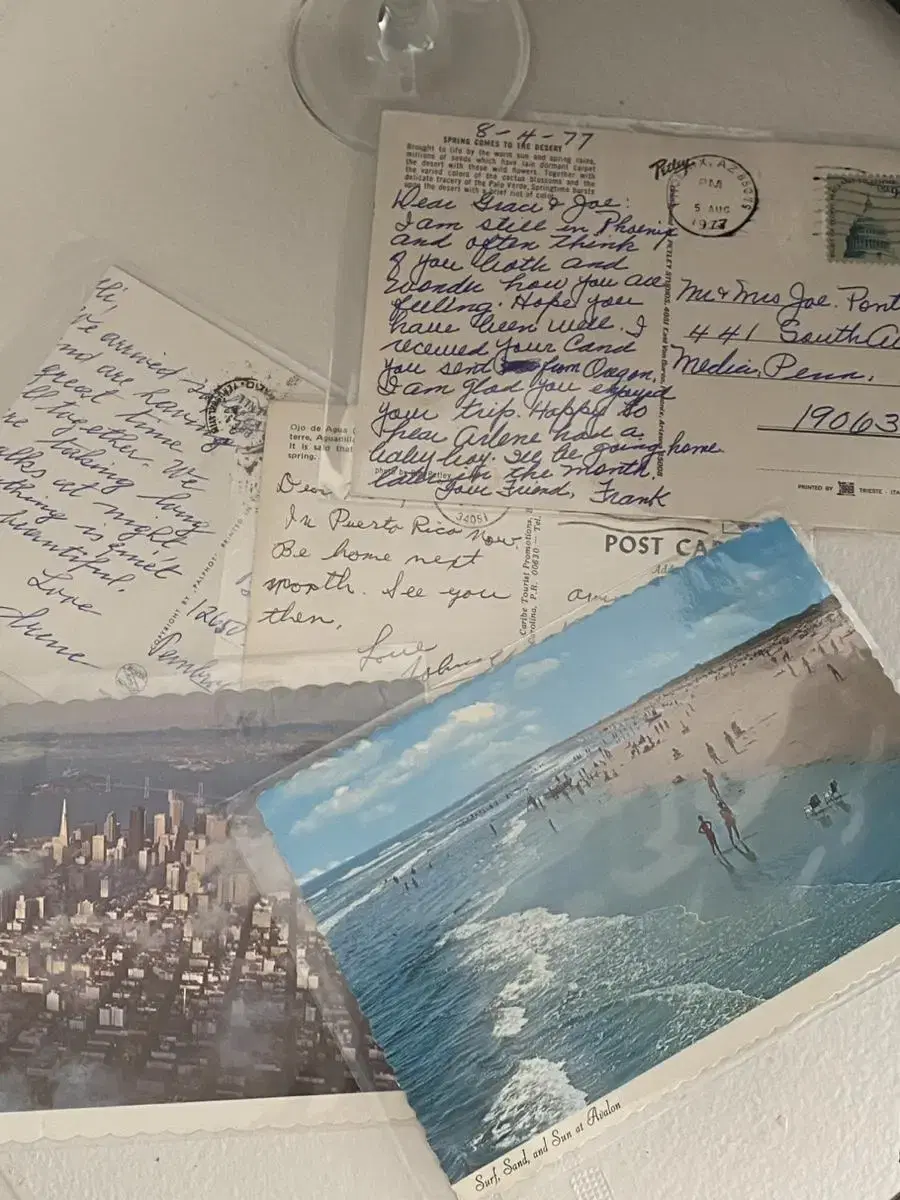 8-4-77
SPRING COMES TO THE DESERT
Brought to life by the warm sun and spring rains,
millions of seeds which have lain dormant carpet
the desert with these wild flowers. Together with
the varied colors of the cactus blossoms and the
delicate tracery of the Palo Verde, Springtime bursts
the desert with a brief riot of color.
Dear Grace & Joe:
I am still in Phoenix
and often think
of you both and
wonder how you are
feeling. Hope you
have been well. I
received your Card
you send from Oregon.
I am glad you enjoyed
your trip. Happy to
hear Arlene had a
baby boy. I'll be going home
later in the month.
Your Friend, Frank
photo by Petley
Petley
X, AZ
PM
5 AUG
1977
PETLEY STUDIOS, 4051 East Van Buren, Phoenix, Arizona 85008
Mr & Mrs Joe. Pont
441 South
Media, Penn.
19063
PRINTED BY TRIESTE - ITA
Hi,
We arrived
and are having
great time
all together. We
're taking long
walks at night,
thing is quiet
beautiful.
Love
Irene
COPYRIGHT BY PALPHOT
12650
Pembr
Ojo de Agua
terre, Aguadilla
It is said that
spring.
Dear
In Puerto Rico now.
Be home next
month. See you
then.
Love
34051
Caribe Tourist Promotions,
Carolina, P.R. 00630 — Tel.
POST CAR
Surf, Sand, and Sun at Avalon